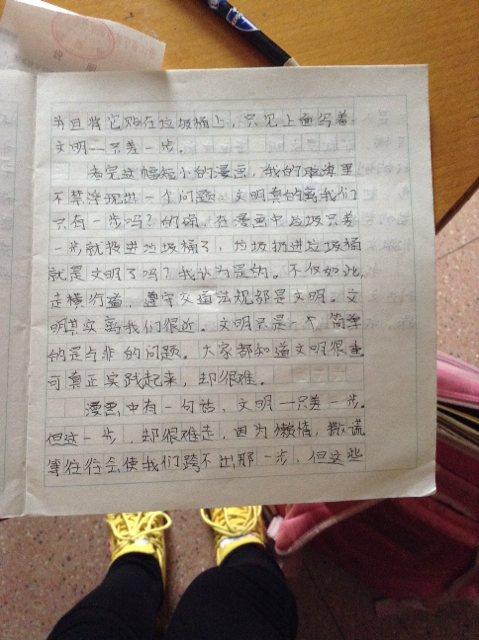 并且将它贴在垃圾桶上，只见上面写着
文明一只差一步。
看完这幅短小的漫画，我的脑海里
不禁浮现出一个问题，文明真的离我们
只有一步吗？的确，在漫画中垃圾只差
一步就投进垃圾桶了，垃圾扔进垃圾桶
就是文明了吗？我认为是的。不仅如此，
走横行道，遵守交通法规都是文明。文
明其实离我们很近。文明只是一个简单
的是与非的问题。大家都知道文明很重
可真正实践起来，却很难。
漫画中有一句话，文明一只差一步。
但这一步，却很难走，因为懒惰，撒谎
等往往会使我们跨不出那一步，但这些